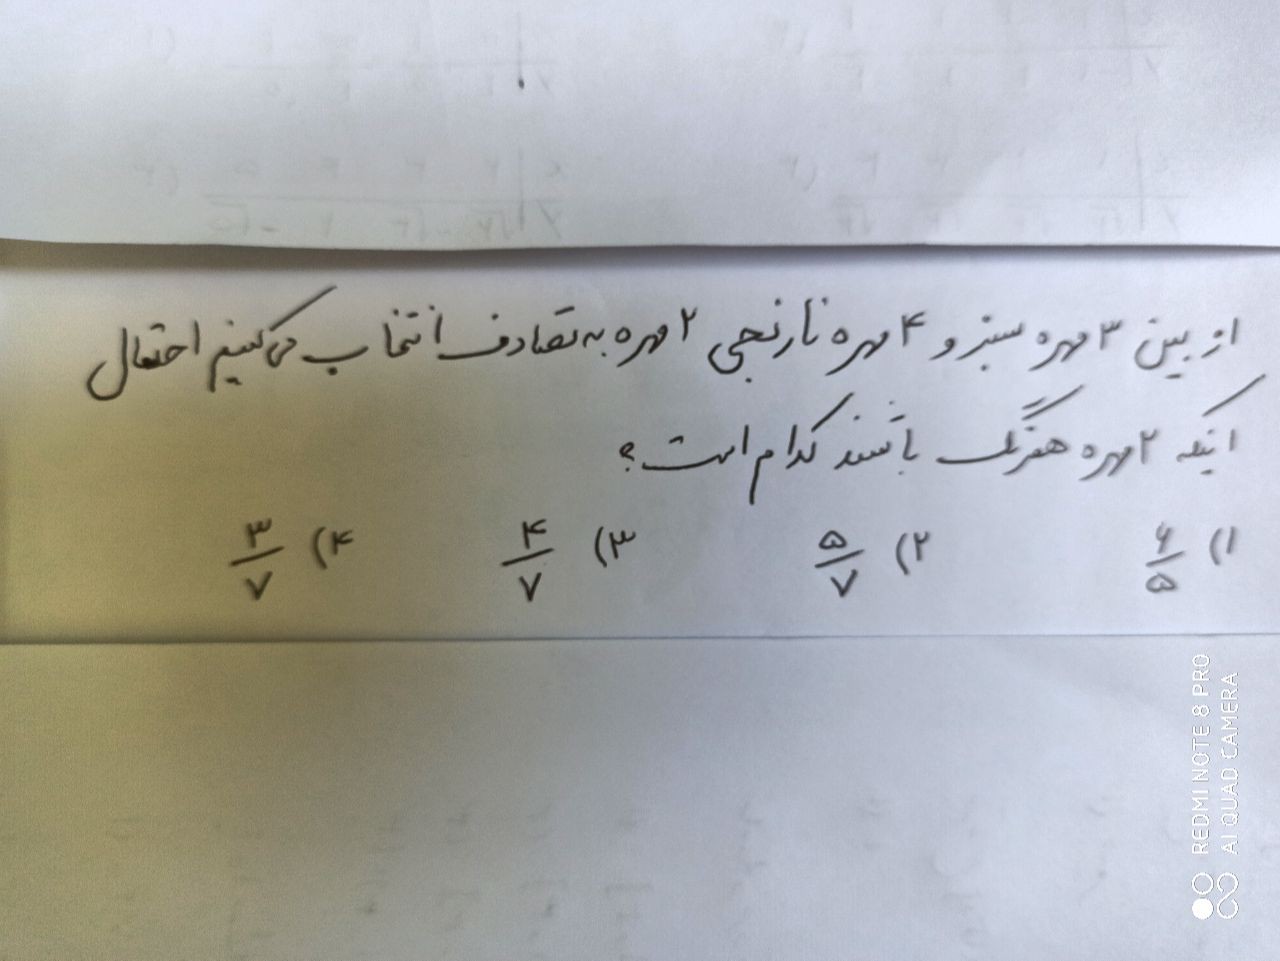 از بین ۳ مهره سبز و ۴ مهره نارنجی ۲ مهره به تصادف انتخاب می‌کنیم احتمال
اینکه ۲ مهره همرنگ باشند کدام است؟
۱) ۶/۵ ۲) ۵/۷ ۳) ۴/۷ ۴) ۳/۷
REDMI NOTE 8 PRO
AI QUAD CAMERA